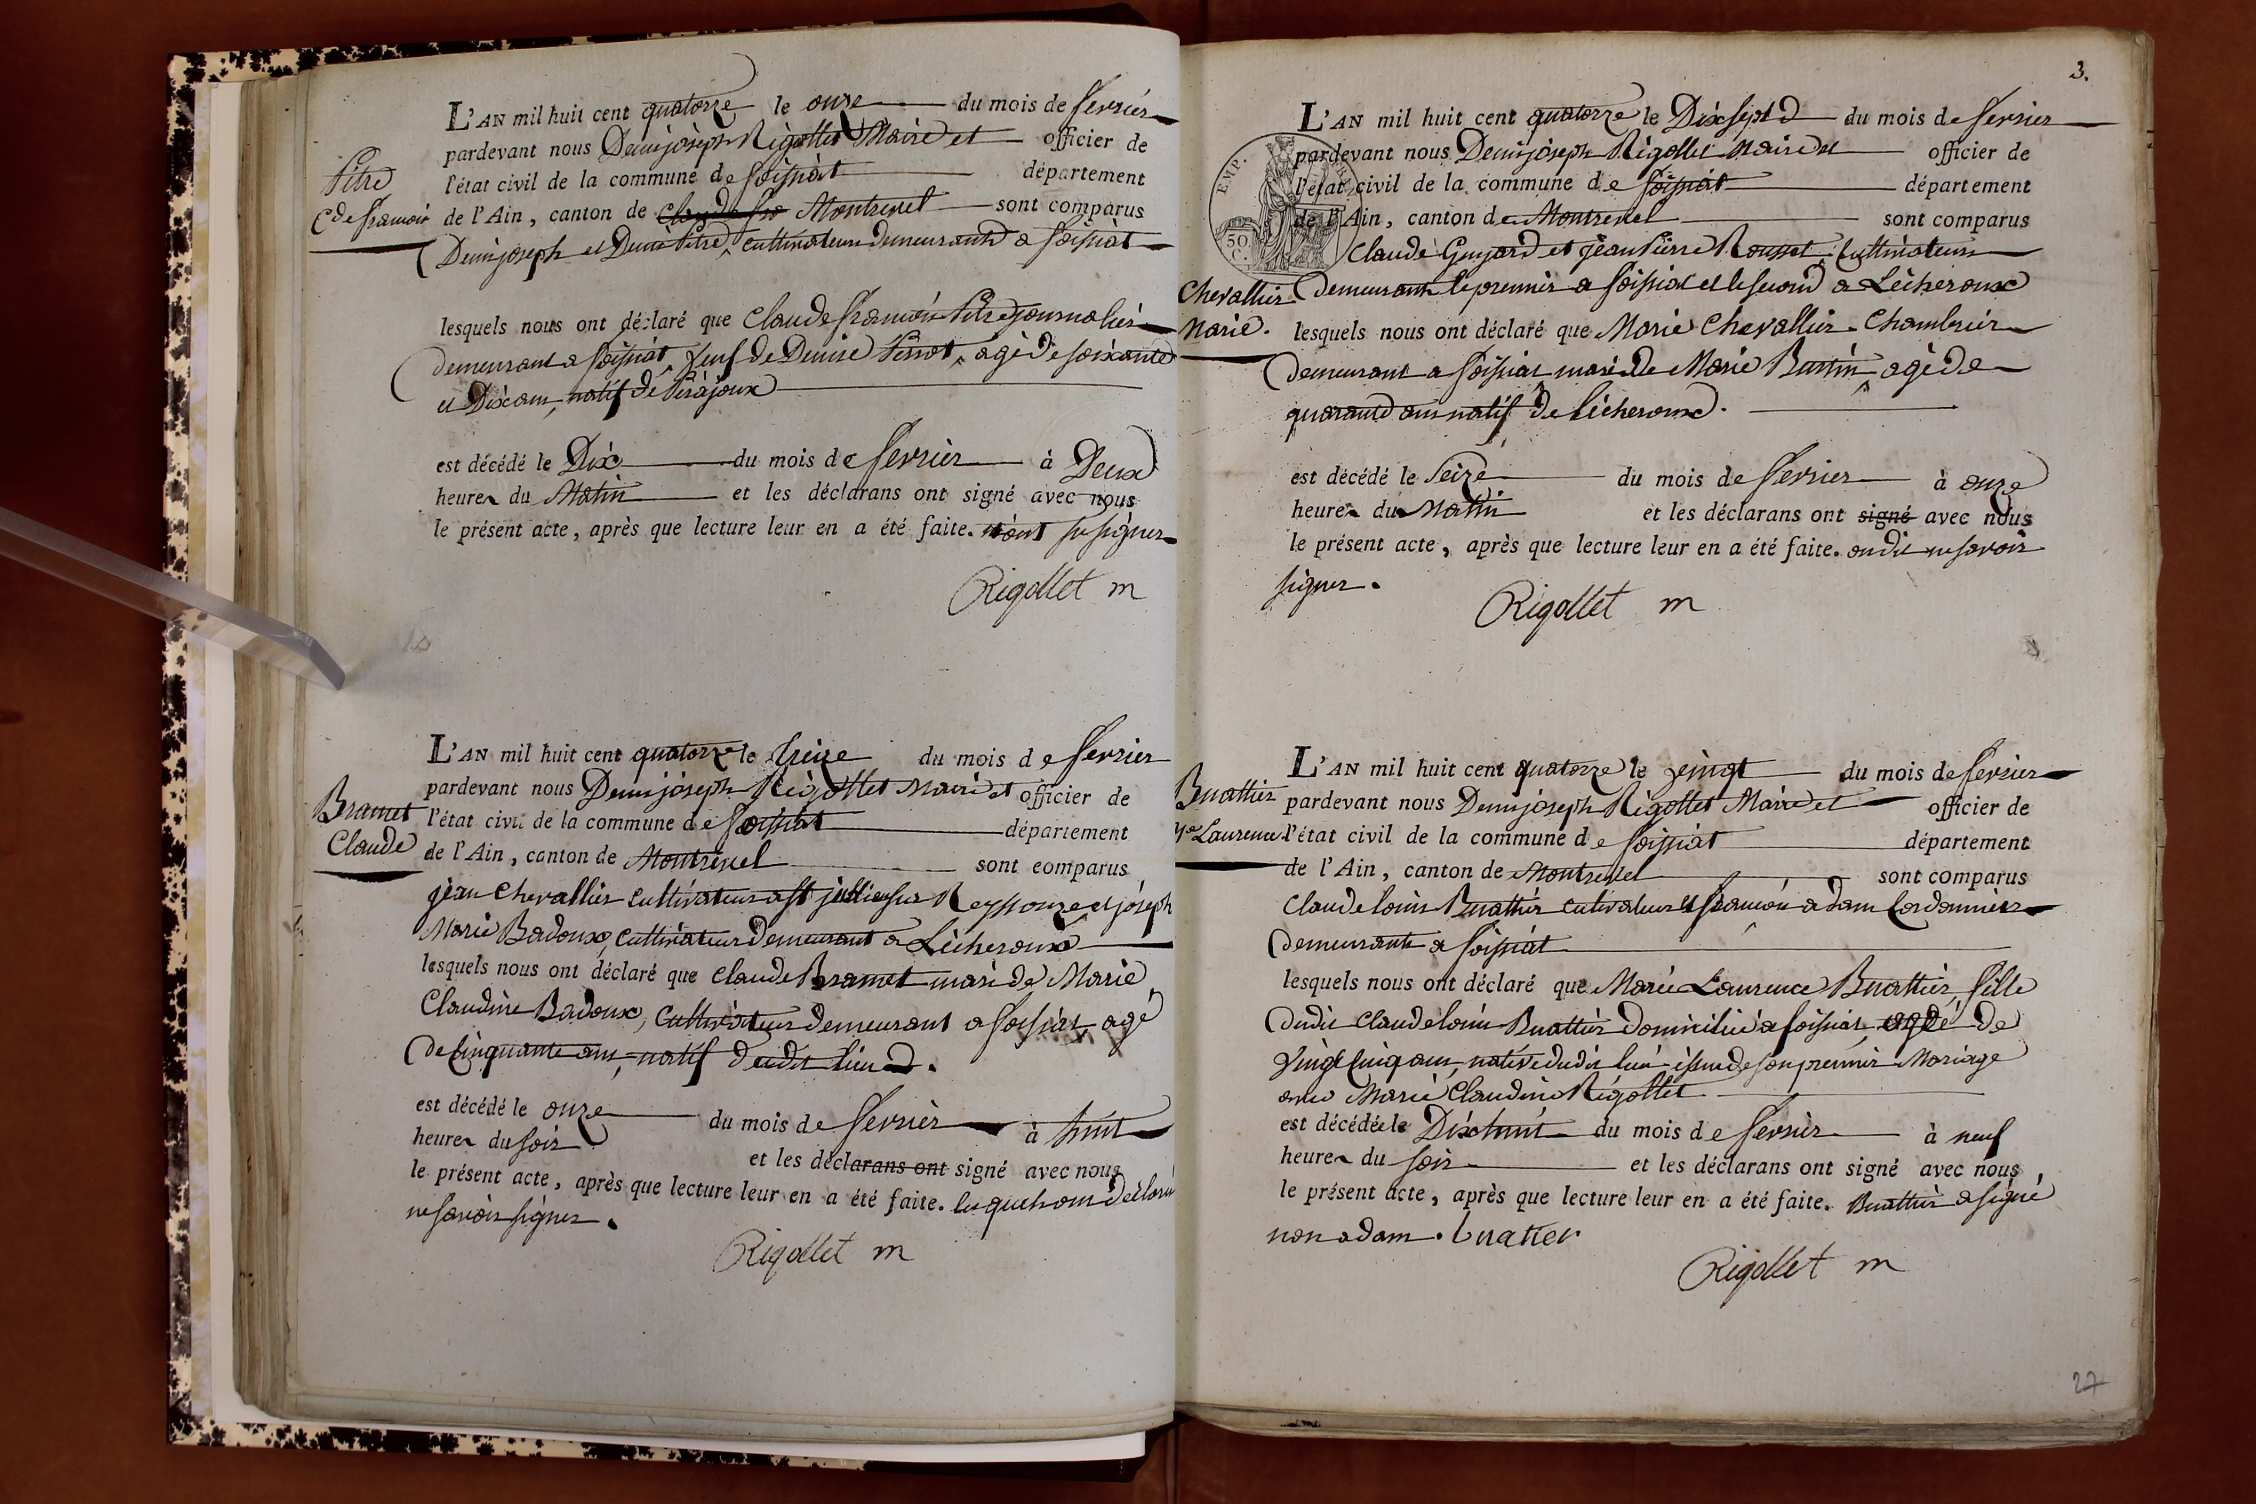 L'AN mil huit cent quatorze le onze du mois de fevrier
pardevant nous Denis joseph Rigollet Maire et officier de
l'état civil de la commune de foissiat département
de l'Ain, canton de Montrevel sont comparus
Denis joseph et Denis Pitre, cultivateurs demeurants a foissiat
Pitre
Cde francois
lesquels nous ont déclaré que Claude francois Pitre journalier
demeurant a foissiat, veuf de Denise Perrot, agé de soixante
et Dix ans, natif de Pirajoux
est décédé le Dix du mois de fevrier à Deux
heures du Matin et les déclarans ont signé avec nous
le présent acte, après que lecture leur en a été faite. n'ont su signer
Rigollet m
L'AN mil huit cent quatorze le treize du mois de fevrier
pardevant nous Denis joseph Rigollet Maire et officier de
l'état civil de la commune de foissiat département
de l'Ain, canton de Montrevel sont comparus
Bramet
Claude
jean Chevallier cultivateur a st jullien sur Reyssouze et joseph
Marie Badoux, cultivateur demeurant a Lécheroux
lesquels nous ont déclaré que Claude Bramet mari de Marie
Claudine Badoux, cultivateur demeurant a foissiat agé
de cinquante ans, natif dudit lieu.
est décédé le onze du mois de fevrier à huit
heures du soir et les déclarans ont signé avec nous
le présent acte, après que lecture leur en a été faite. lesquels ont déclaré
ne savoir signer.
Rigollet m
3.
L'AN mil huit cent quatorze le Dix sept du mois de fevrier
pardevant nous Denis joseph Rigollet maire et officier de
l'état civil de la commune de foissiat département
de l'Ain, canton de Montrevel sont comparus
EMP.
50
C.
Claude Guyard et jean Pierre Rousset, Cultivateurs
demeurants le premier a foissiat et le second a Lécheroux
Chevallier
Marie.
lesquels nous ont déclaré que Marie Chevallier Chambrier
demeurant a foissiat mari de Marie Burtin, agé de
quarante ans natif de Lécheroux.
est décédé le Seize du mois de fevrier à onze
heures du Matin et les déclarans ont signé avec nous
le présent acte, après que lecture leur en a été faite. on dit ne savoir
signer.
Rigollet m
L'AN mil huit cent quatorze le vingt du mois de fevrier
pardevant nous Denis joseph Rigollet Maire et officier de
l'état civil de la commune de foissiat département
de l'Ain, canton de Montrevel sont comparus
Buathier
Me Laurence
Claude louis Buathier cultivateur et francois adam Cordonnier
demeurants a foissiat
lesquels nous ont déclaré que Marie Laurence Buathier, fille
dudit Claude louis Buathier domicilié a foissiat, agée de
vingt cinq ans, native dudit lieu issue de son premier Mariage
avec Marie Claudine Rigollet
est décédée le Dix huit du mois de fevrier à neuf
heures du soir et les déclarans ont signé avec nous
le présent acte, après que lecture leur en a été faite. Buathier a signé
non adam. buatier
Rigollet m
27